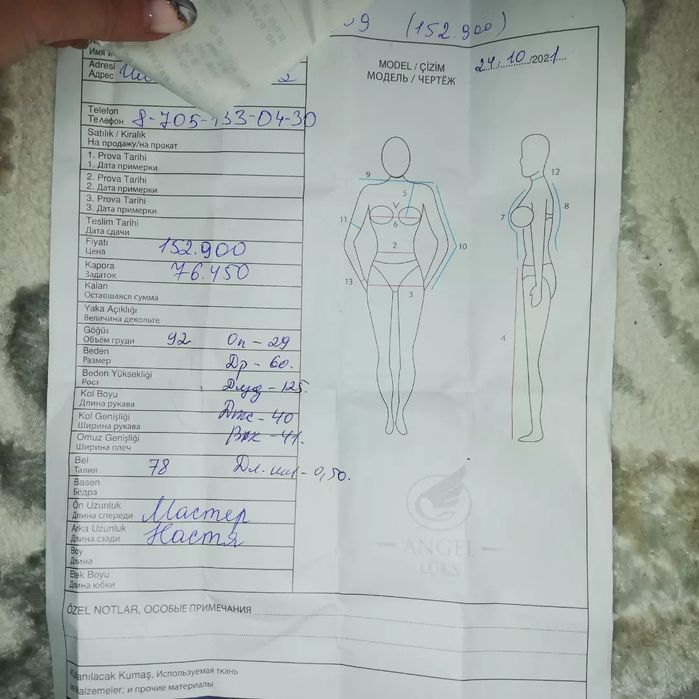 (152.900)
Имя и
Adresi
Адрес
MODEL / ÇİZİM
МОДЕЛЬ / ЧЕРТЁЖ
24.10./2021
Telefon
Телефон 8-705-133-04-30
Satılık / Kiralık
На продажу/на прокат
1. Prova Tarihi
1. Дата примерки
2. Prova Tarihi
2. Дата примерки
3. Prova Tarihi
3. Дата примерки
Teslim Tarihi
Дата сдачи
Fiyatı
Цена 152.900
Kapora
Задаток 76.450
Kalan
Оставшаяся сумма
Yaka Açıklığı
Величина декольте
Göğüs
Объём груди 92 Оп - 29
Beden
Размер Др - 60.
Beden Yüksekliği
Рост - 125.
Kol Boyu
Длина рукава - 40
Kol Genişliği
Ширина рукава - 41.
Omuz Genişliği
Ширина плеч
Bel
Талия 78 Дл. - 0,50.
Basen
Бедра
Ön Uzunluk
Длина спереди Мастер
Arka Uzunluk
Длина сзади Настя
Boy
Длина
Etek Boyu
Длина юбки
9
12
5
7
8
11
6
V
2
10
13
3
4
ANGEL
LÜKS
ÖZEL NOTLAR, ОСОБЫЕ ПРИМЕЧАНИЯ
Kumaş, Используемая ткань
malzemeler; и прочие материалы